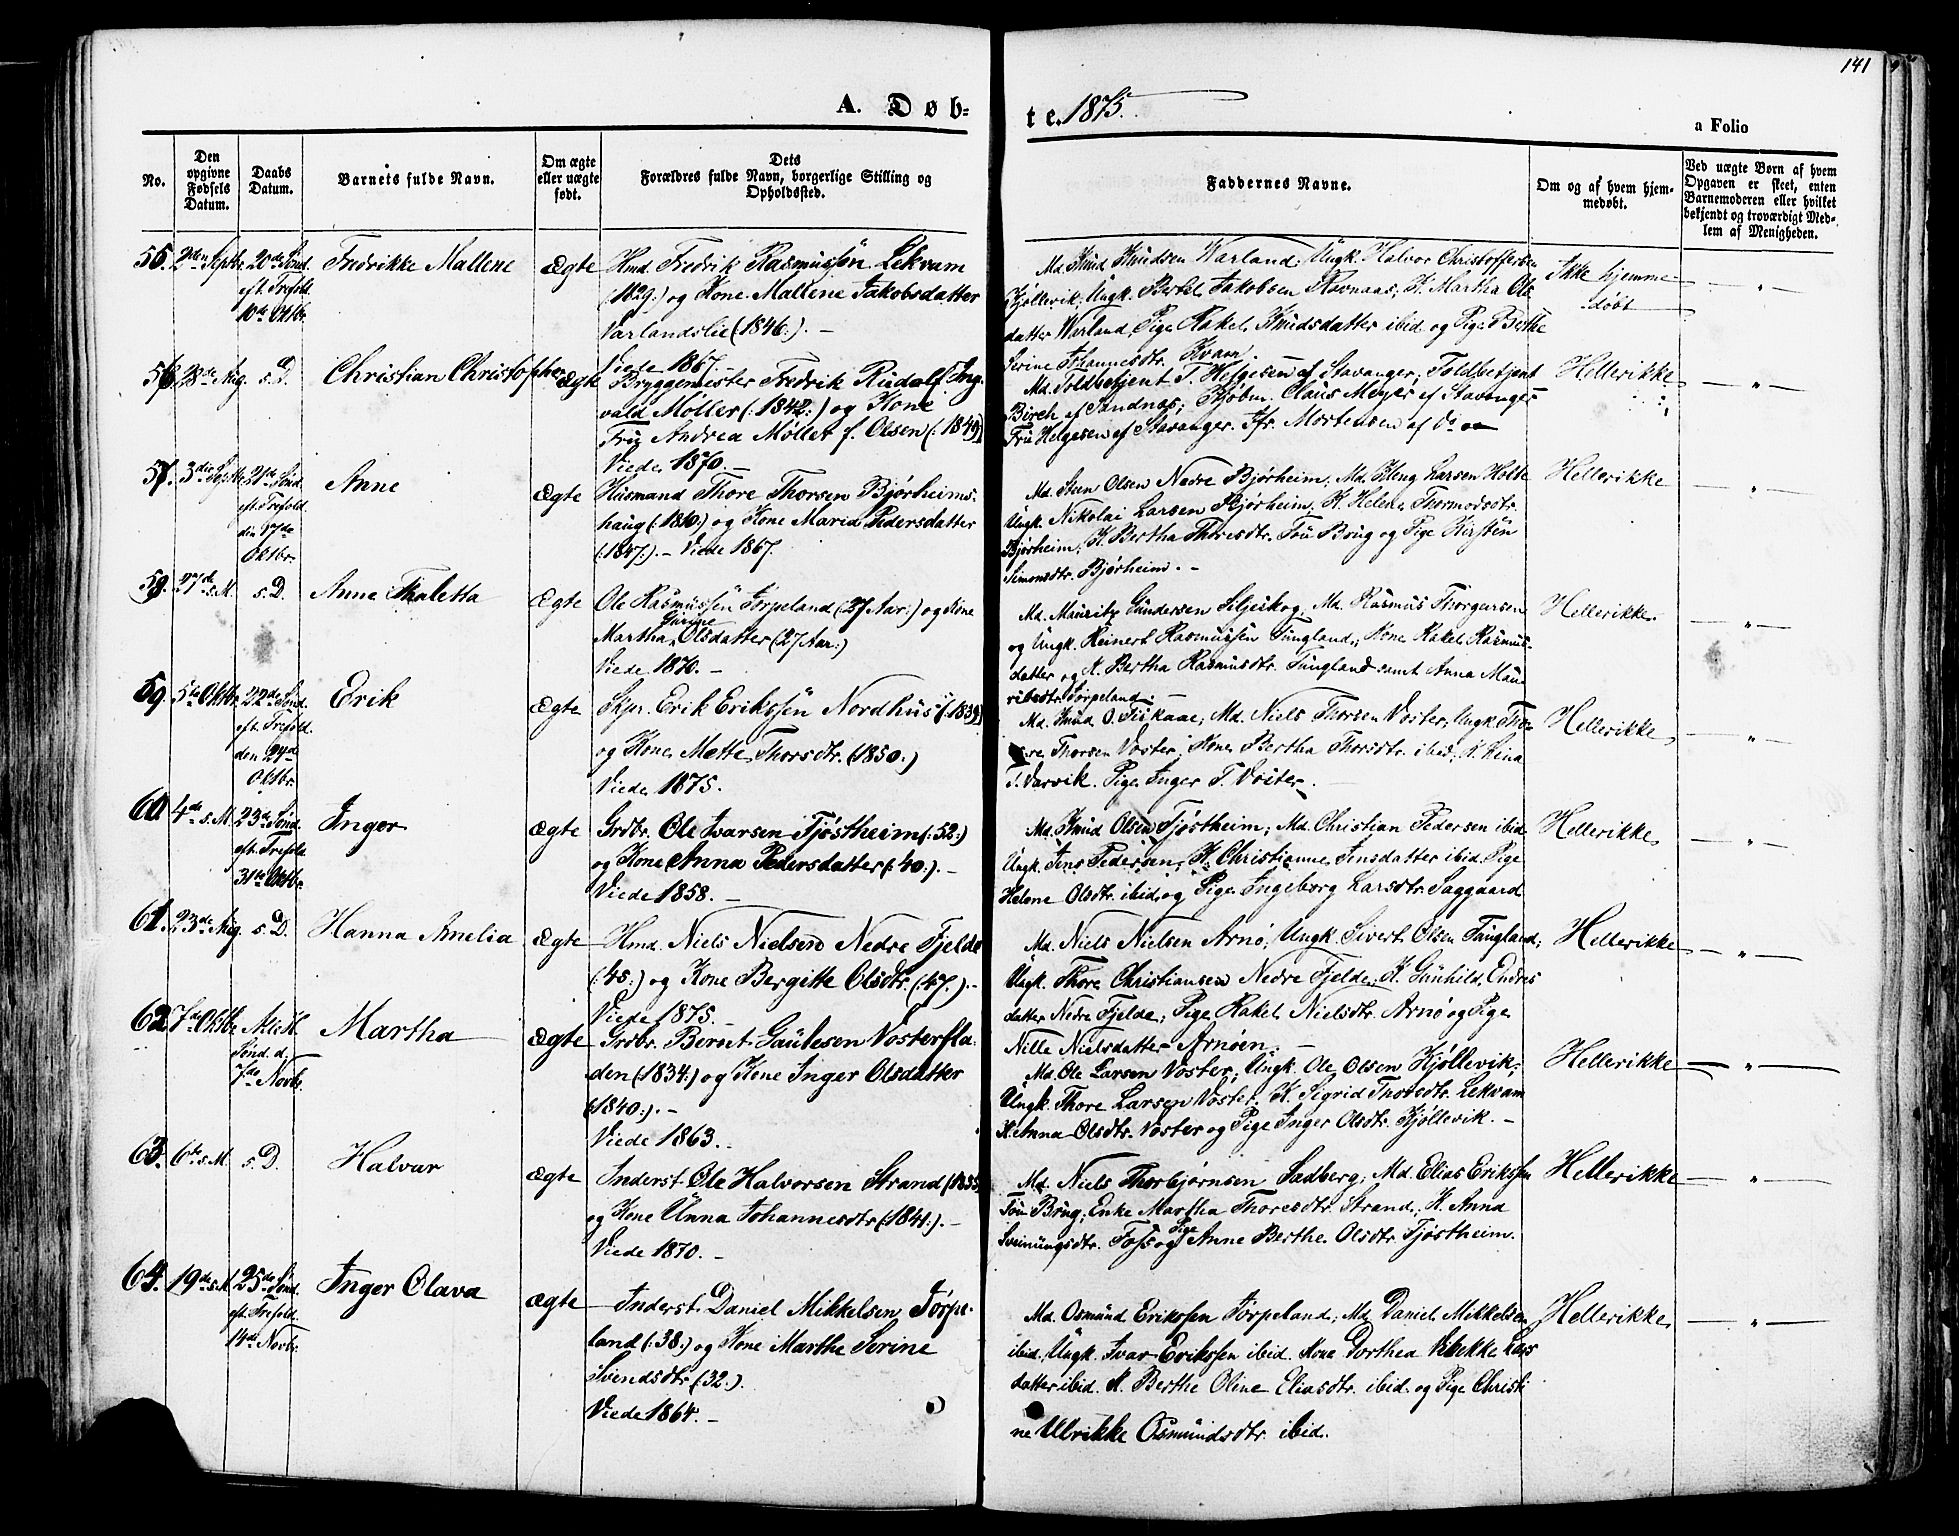 141
A. Døb-
te. 1875.
a Folio
No.
Den opgivne Fødsels Datum.
Daabs Datum.
Barnets fulde Navn.
Om ægte eller uægte født.
Dets Forældres fulde Navn, borgerlige Stilling og Opholdssted.
Faddernes Navne.
Om og af hvem hjemmedøbt.
Ved uægte Børn af hvem Opgaven er skeet, enten Barnemoderen eller hvilket bekjendt og troværdigt Medlem af Menigheden.
55. 2den Septbr. 20de Sønd. eft. Trefold. 10de Oktbr.
Fredrikke Mallene
Ægte
Hmd. Fredrik Rasmussen Lekvam
(1829:) og Kone Mallene Jakobsdatter
Varlandslie (1846:). —
Viede 1867. —
Md. Knud Knudsen Warland; Ungk. Halvor Christoffersen
Kjøllevik; Ungk. Bertel Jakobsen Ravnaas; K. Martha Ols
datter Warland, Pige Rakel Knudsdatter ibid og Pige Berthe
Serine Johannesdtr. Kvam.
Ikke hjemme
døbt
— „ —
56. 28de Aug. s. D.
Christian Christopher
Ægte
Bryggemester Fredrik Rudolf Ing-
vald Møller (:1842:) og Kone
Fru Andrea Møller f. Olsen (:1849)
Viede 1870. —
Md. Toldbetjent T. Helgesen af Stavanger; Toldbetjent
Birch af Sandnæs; Kjøbm. Claus Meyer af Stavanger
Fru Helgesen af Stavanger. Jfr. Mortensen af do
Hellerikke
— „ —
57. 3die Septbr. 21de Sønd. eft. Trefold. den 17de Oktbr.
Anne
Ægte
Husmand Thore Thorsen Bjørheims-
haug (:1840:) og Kone Maria Pedersdatter
(:1847:). — Viede 1867.
Md. Sten Olsen Nedre Bjørheim; Md. Kleng Larsen Holte
Ungk. Nikolai Larsen Bjørheim, K. Helene Thormodsdtr.
Bjørheim; K. Bertha Thoresdtr. Tou Brug og Pige Kirsten
Simonsdtr. Bjørheim. —
Hellerikke
— „ —
58. 27de s. M. s. D.
Anne Thaletta
Ægte
Ole Rasmussen Jørpeland (27 Aar:) og Kone
Martha Gurine Olsdatter (27 Aar:)
Viede 1870. —
Md. Mauritz Gundersen Seljeskog; Md. Rasmus Thorgersen
og Ungk. Reinert Rasmussen Tungland; Kone Rakel Rasmus-
datter og K. Bertha Rasmusdtr. Tungland samt Anna Mau-
ritzdtr. Jørpeland. —
Hellerikke.
— „ —
59. 5te Oktbr. 22de Sønd. eft. Trefold. den 24de Oktbr.
Erik
Ægte
Skpr. Erik Erikssen Nordhus (:1839)
og Kone Mette Thorsdtr. (1850:)
Viede 1875.
Md. Knud O. Fiskaae; Md. Niels Thorsen Voster, Ungk. Tho-
re Thorsen Voster; Kone Bertha Thorsdtr. ibid; K. Reina
T. Varvik. Pige Inger T. Voster. —
Hellerikke
— „ —
60. 4de s. M. 23de Sønd. eft. Trefold. 31te Oktbr.
Inger
Ægte
Grdbr. Ole Ivarsen Tjøstheim (:52:)
og Kone Anna Pedersdatter (:40:). —
Viede 1858. —
Md. Knud Olsen Tjøstheim; Md. Christian Pedersen ibid
Ungk. Jens Pedersen, K. Christianne Jensdatter ibid. Pige
Helene Olsdtr. ibid, og Pige Ingeborg Larsdtr. Saggaard
Hellerikke
— „ —
61. 23de Aug. s. D.
Hanna Amelia
Ægte
Hmd. Niels Nielsen Nedre Fjelde
(:45:) og Kone Bergitte Olsdtr. (:47.). —
Viede 1875. —
Md. Niels Nielsen Arnø; Ungk. Sivert Olsen Tungland;
Ungk. Thore Christiansen Nedre Fjelde; K. Gunhild Endres
datter Nedre Fjelde; Pige Rakel Nielsdtr. Arnø og Pige
Nille Nielsdatter Arnøen. —
Hellerikke
— „ —
62. 7de Oktbr. Sønd. d. 7de Novbr.
Martha
Ægte
Grdbr. Bernt Gautesen Vosterfla-
den (1834:) og Kone Inger Olsdatter
(1840:). —
Viede 1863. —
Md. Ole Larsen Voster; Ungk. Ole Olsen Kjøllevik;
Ungk. Thore Larsen Voster. K. Sigrid Thorsdtr. Lekvam
K. Anna Olsdtr. Voster og Pige Inger Olsdtr. Kjøllevik. —
Hellerikke
— „ —
63. 6te s. M. s. D.
Halvar
Ægte
Inderst Ole Halvorsen Strand (1835)
og Kone Unna Johannesdtr (:1841:). —
Viede 1870. —
Md. Niels Thorbjørnsen Sadberg; Md. Elias Erikssen
Tou Brug; Enke Martha Thoresdtr. Strand; K. Anna
Sveinungsdtr. Foss og Pige Anne Berthe Olsdtr. Tjøstheim.
Hellerikke
— „ —
64. 19de s. M. 25de Sønd. eft. Trefold. 14de Novbr.
Inger Olava
Ægte
Inderst Daniel Mikkelsen Jørpe-
land (:38:) og Kone Marthe Serine
Svendsdtr (:32:).
Viede 1864. —
Md. Osmund Erikssen Jørpeland; Md. Daniel Mikkelsen
ibid. Ungk. Ivar Erikssen ibid. Kone Dorthea Vibekke Lars
datter ibid. K. Berthe Oline Eliasdtr. ibid. og Pige Christi
ne Ulrikke Osmundsdtr. ibid.
Hellerikke
— „ —